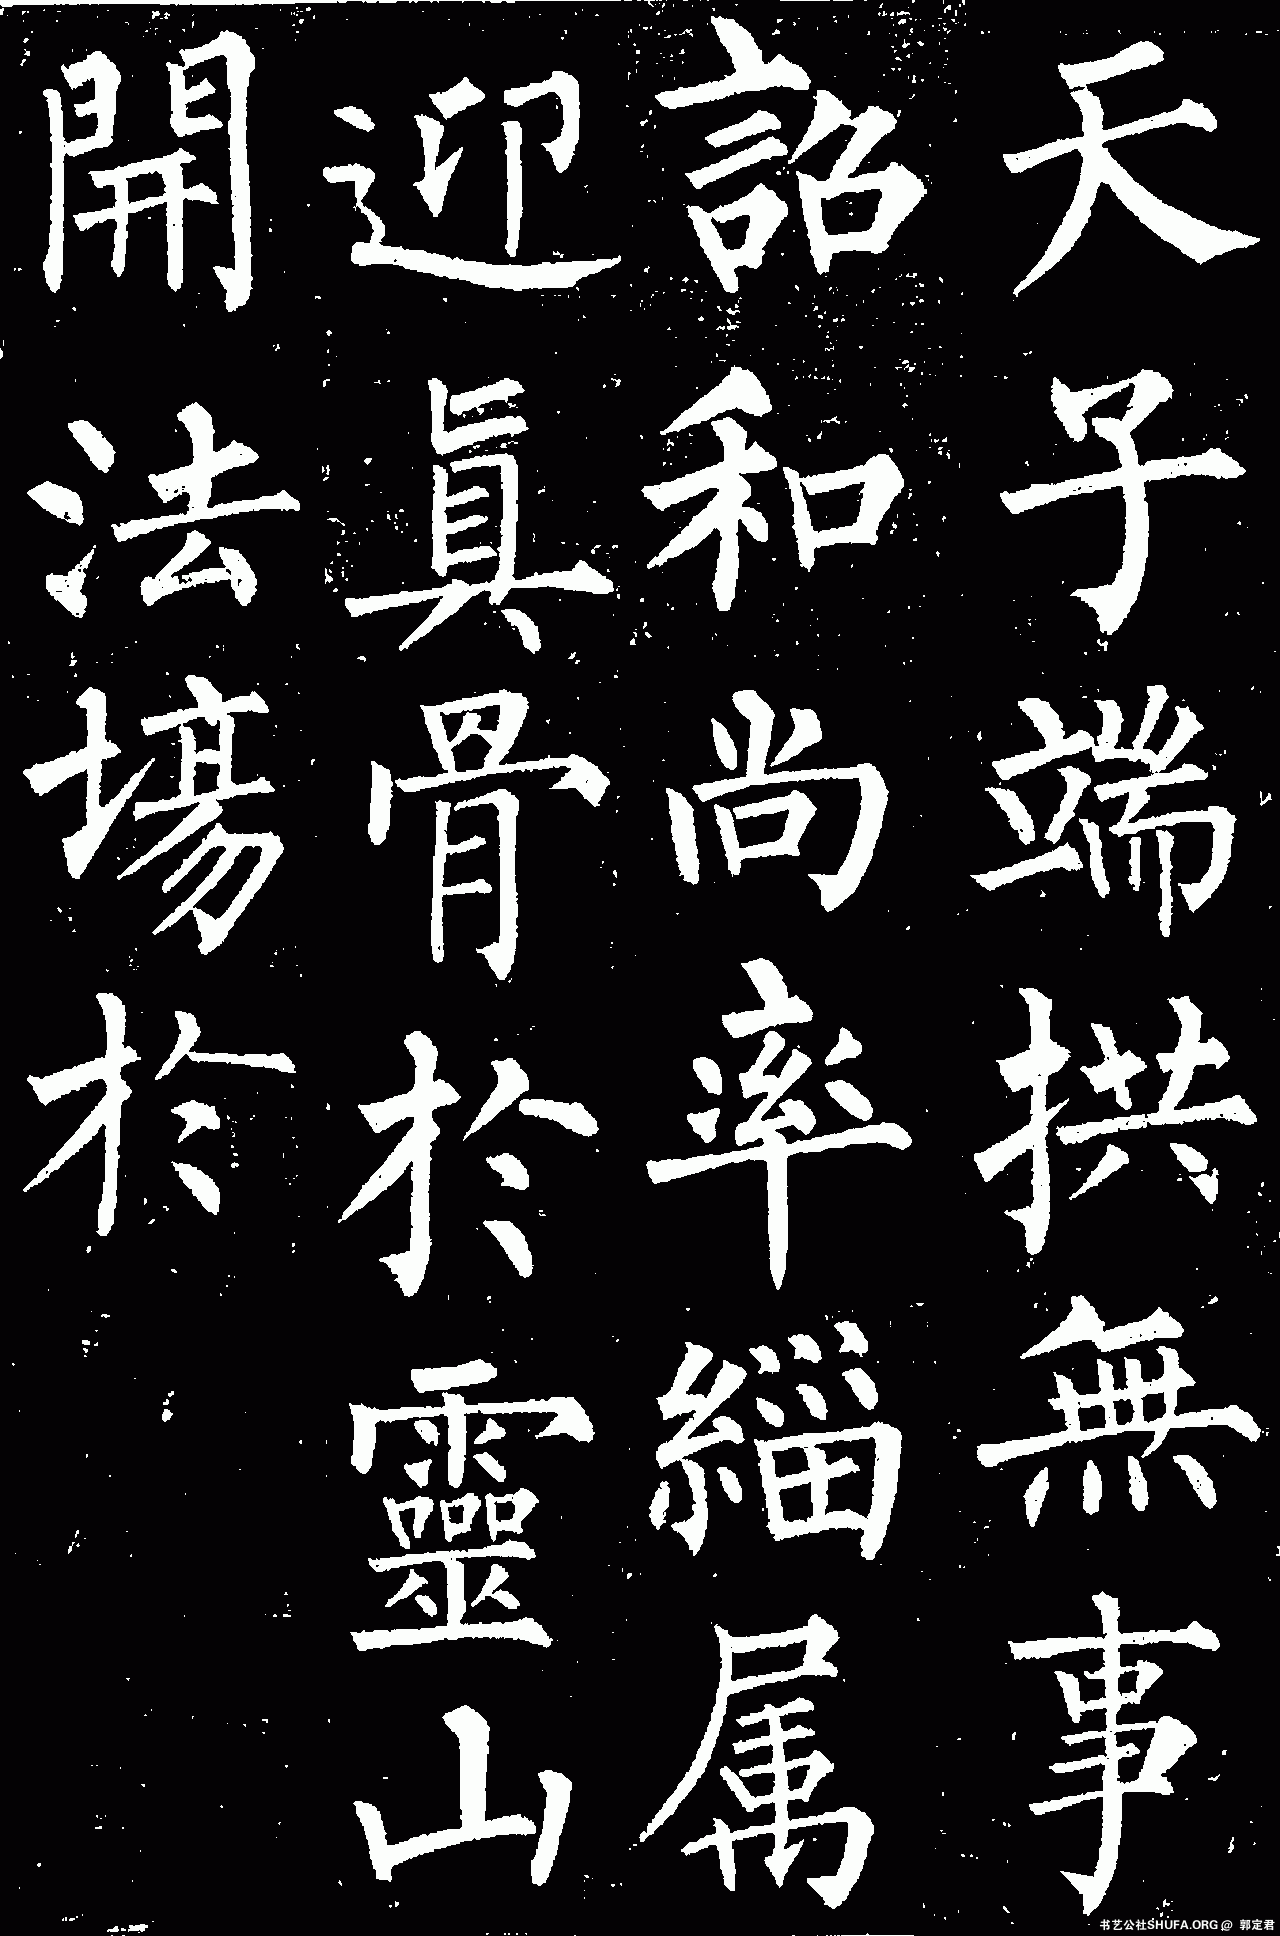 天子端拱無事
詔和尚率緇属
迎眞骨於靈山
開法場於
书艺公社SHUFA.ORG @ 郭定君